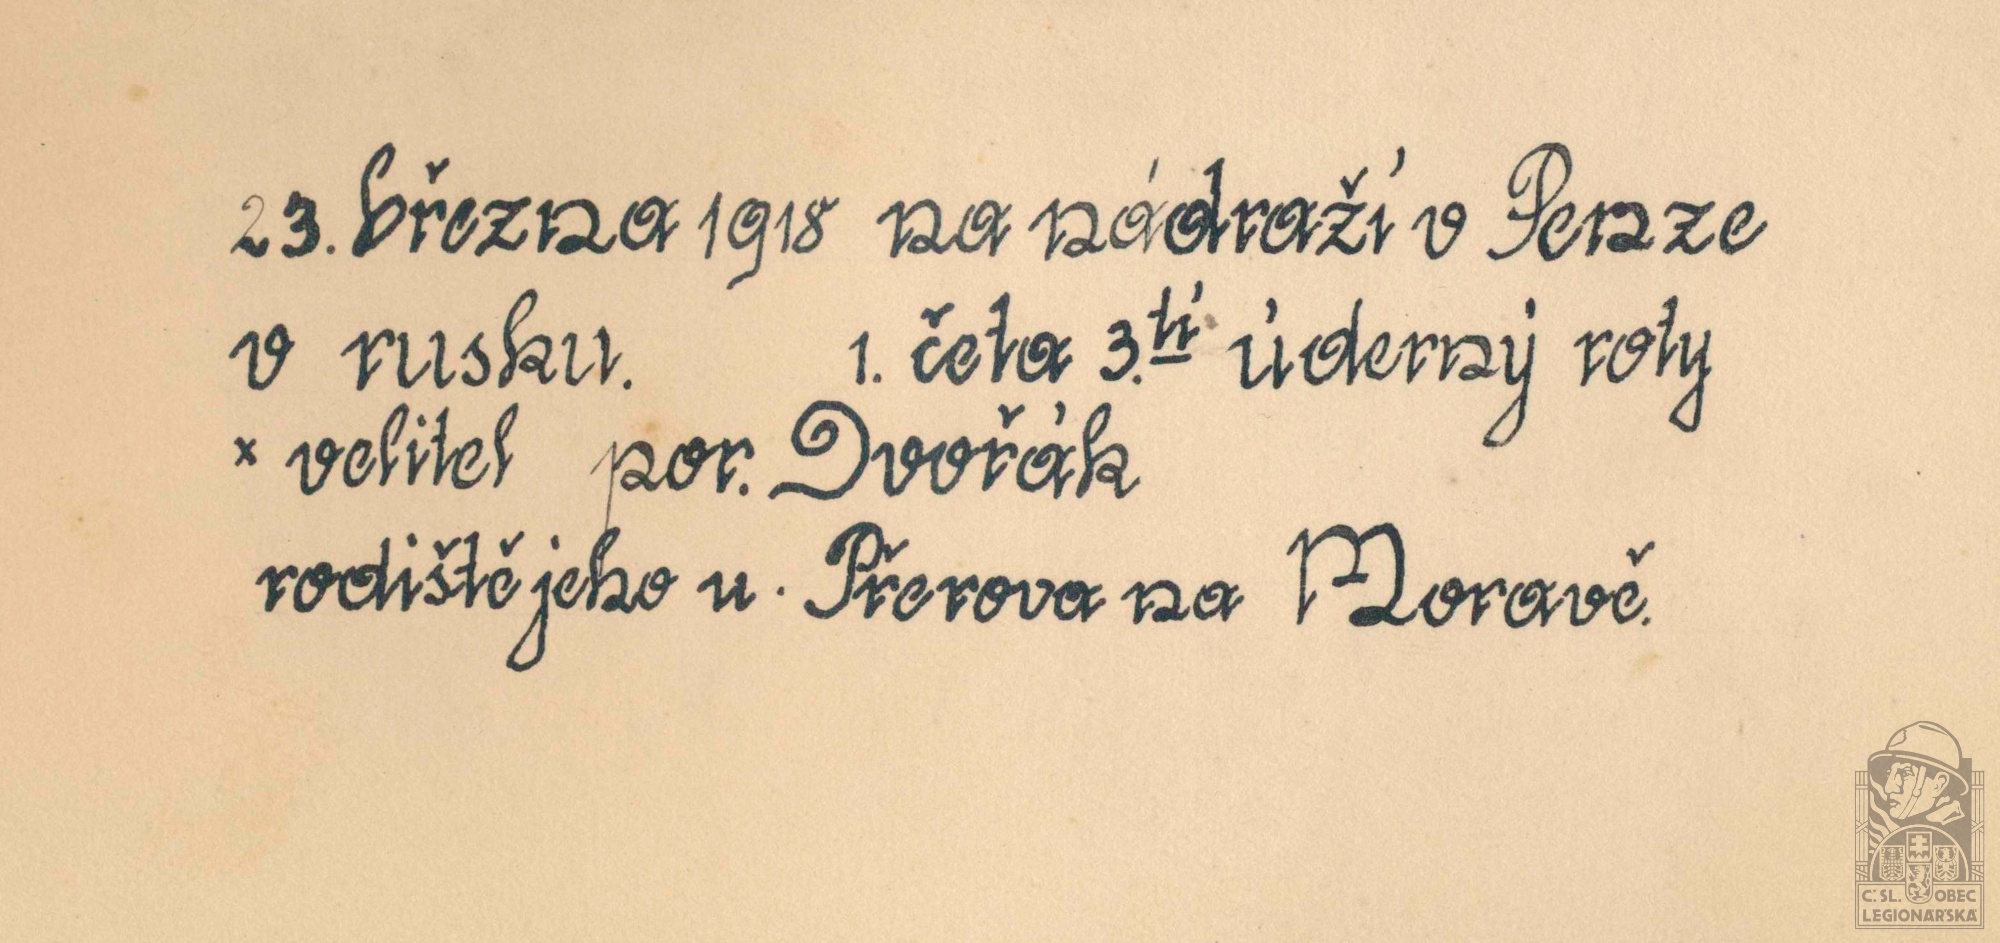 23. března 1918 na nádraží v Penze
v rusku. 1. četa 3.tí úderný roty
x velitel por. Dvořák
rodiště jeho u. Přerova na Moravě.
Č.SL. OBEC
LEGIONÁŘSKÁ